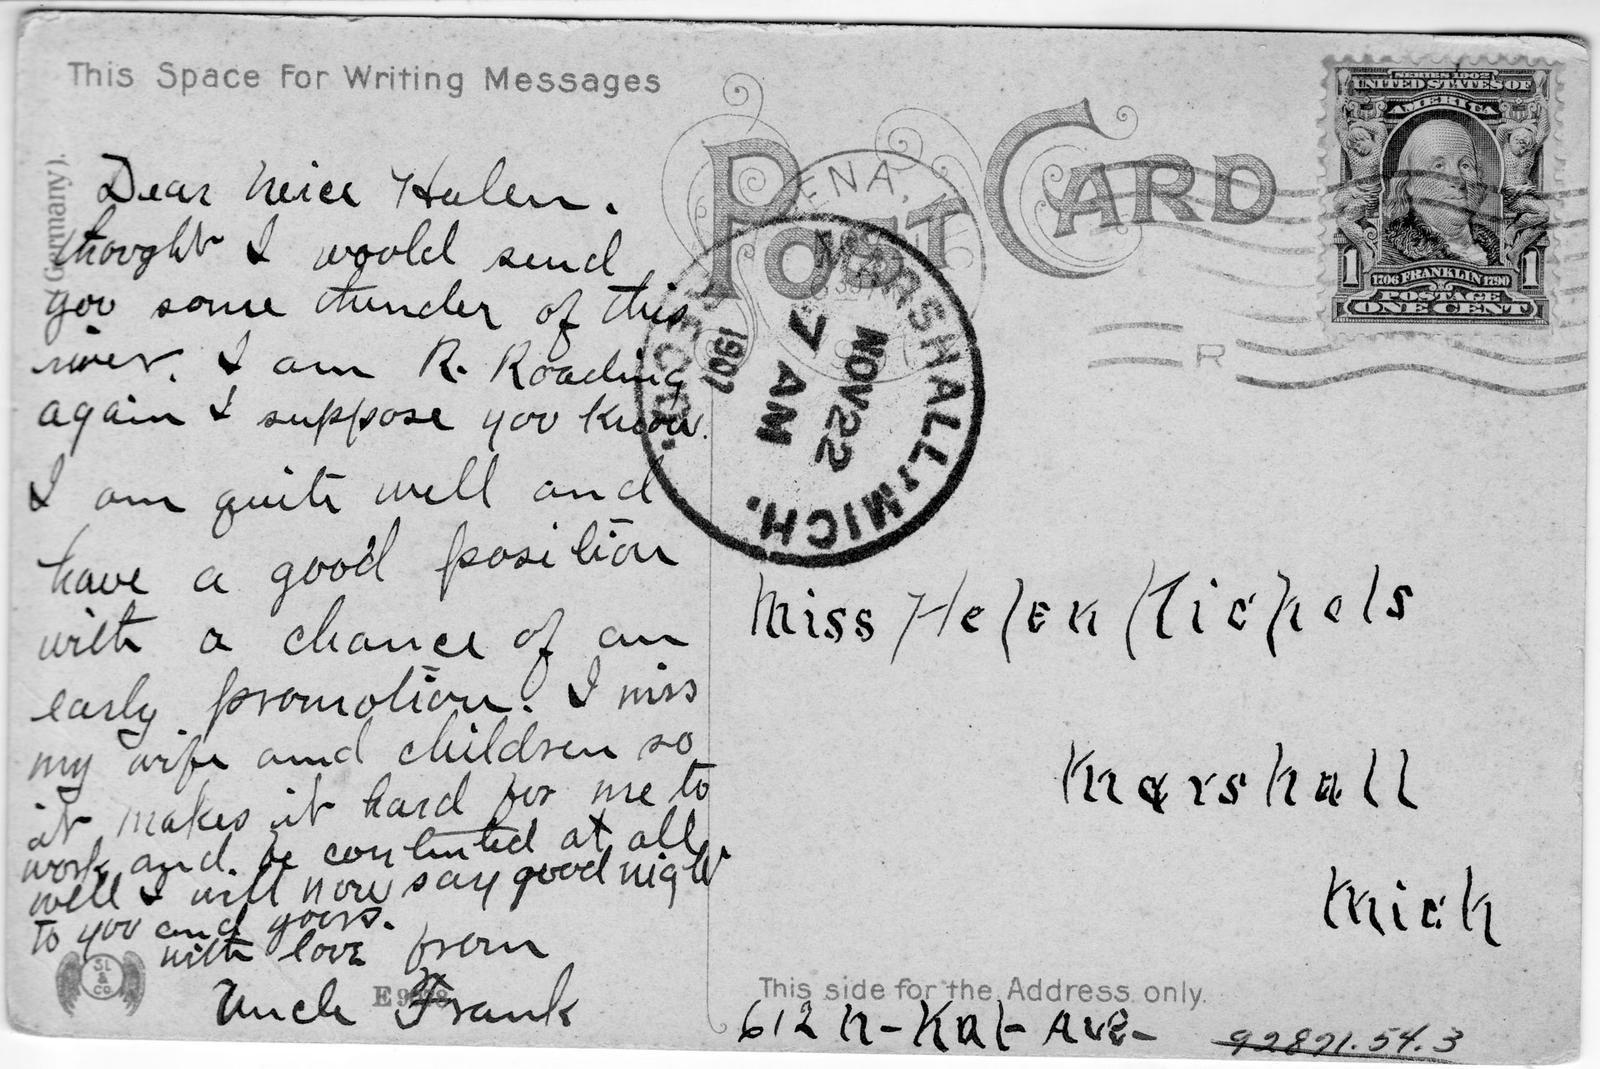 This Space For Writing Messages
(Germany).
Dear Neice Halen.
thought I would send
you some thunder of this
river. I am R. Roading
again I suppose you know.
I am quite well and
have a good position
with a chance of an
early promotion. I miss
my wife and children so
it makes it hard for me to
work and be contented at all
well I will now say goodnight
to you and yours.
with love from
Uncle Frank
SL
& Co
POST CARD
ENA,
MARSHALL, MICH.
REC'D.
1907
NOV 22
7 AM
SERIES 1902
UNITED STATES OF
AMERICA
1 1
1706 FRANKLIN 1790
POSTAGE
ONE CENT
R
Miss Helen Nichols
Marshall
Mich
This side for the Address only.
612 N-Kal-Ave-
92871.54.3